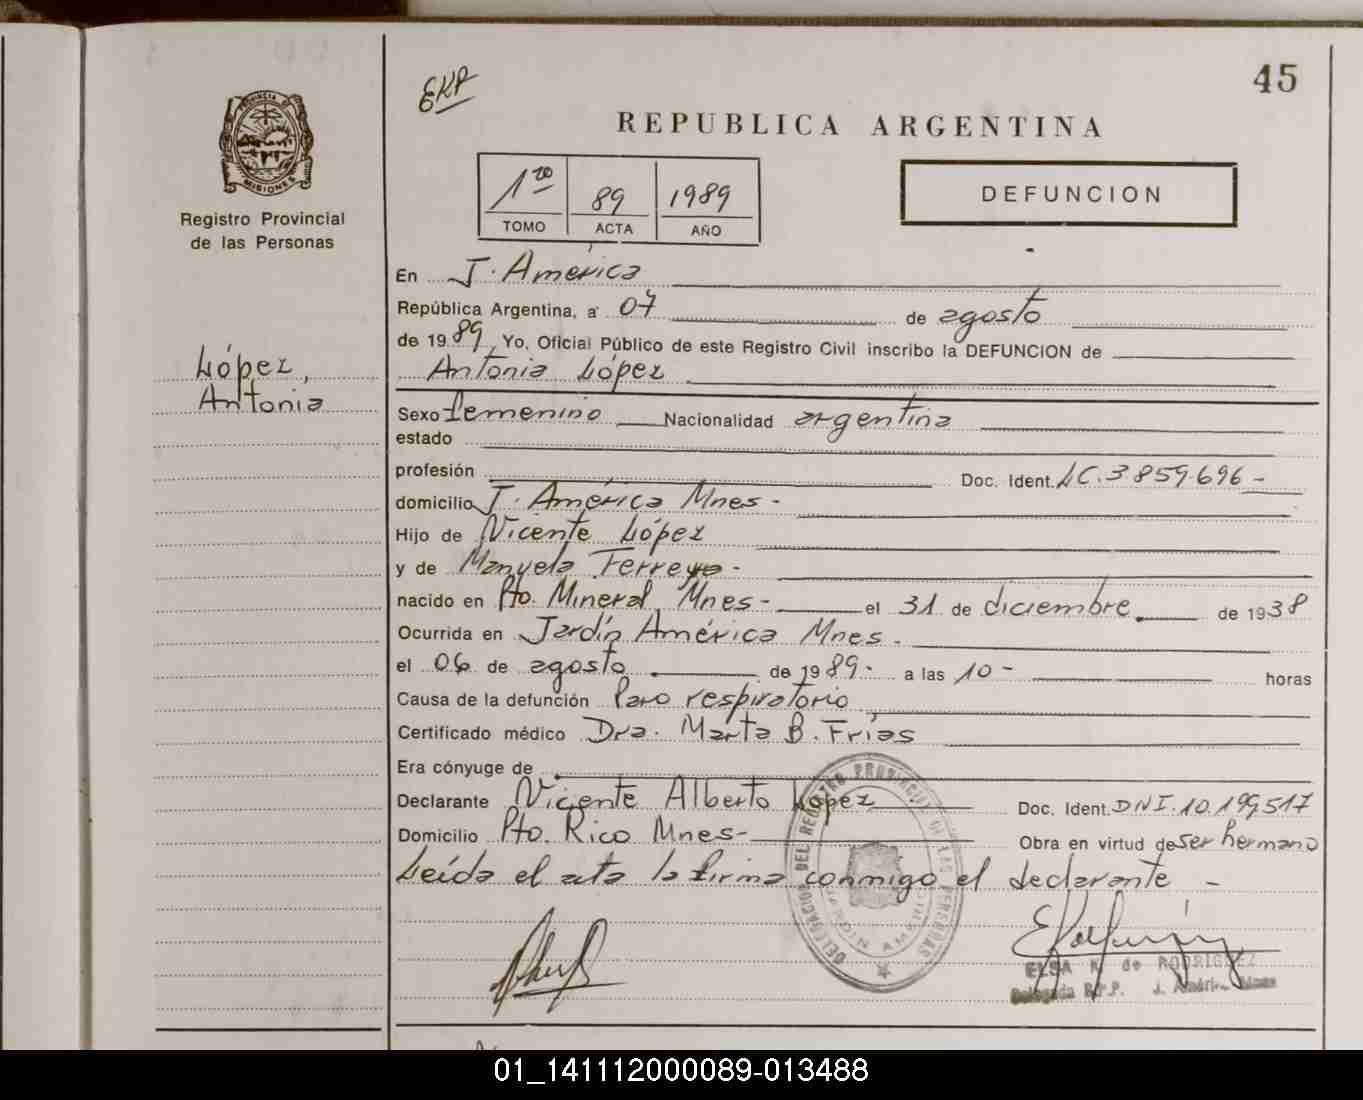 EKP
45
PROVINCIA DE MISIONES
REPUBLICA ARGENTINA
1ro 89 1989
TOMO ACTA AÑO
DEFUNCION
Registro Provincial
de las Personas
López,
Antonia
En J. América
República Argentina, a 07 de agosto
de 1989, Yo, Oficial Público de este Registro Civil inscribo la DEFUNCION de
Antonia López
Sexo femenino Nacionalidad argentina
estado
profesión Doc. Ident. LC.3859.696-
domicilio J. América Mnes-
Hijo de Vicente López
y de Manuela Ferreyra-
nacido en Pto. Mineral, Mnes- el 31 de diciembre de 1938
Ocurrida en Jardín América Mnes.
el 06 de agosto de 1989- a las 10- horas
Causa de la defunción Paro respiratorio
Certificado médico Dra. Marta B. Frías
Era cónyuge de
Declarante Vicente Alberto López Doc. Ident. DNI.10.199,517
Domicilio Pto. Rico Mnes- Obra en virtud de ser hermano
Leída el acta la firma conmigo el declarante-
DELEGACION DEL REGISTRO PROVINCIAL DE LAS PERSONAS
JARDIN AMERICA
ELSA K. de RODRIGUEZ
Delegada R.P.P. J. América Mnes
01_141112000089-013488